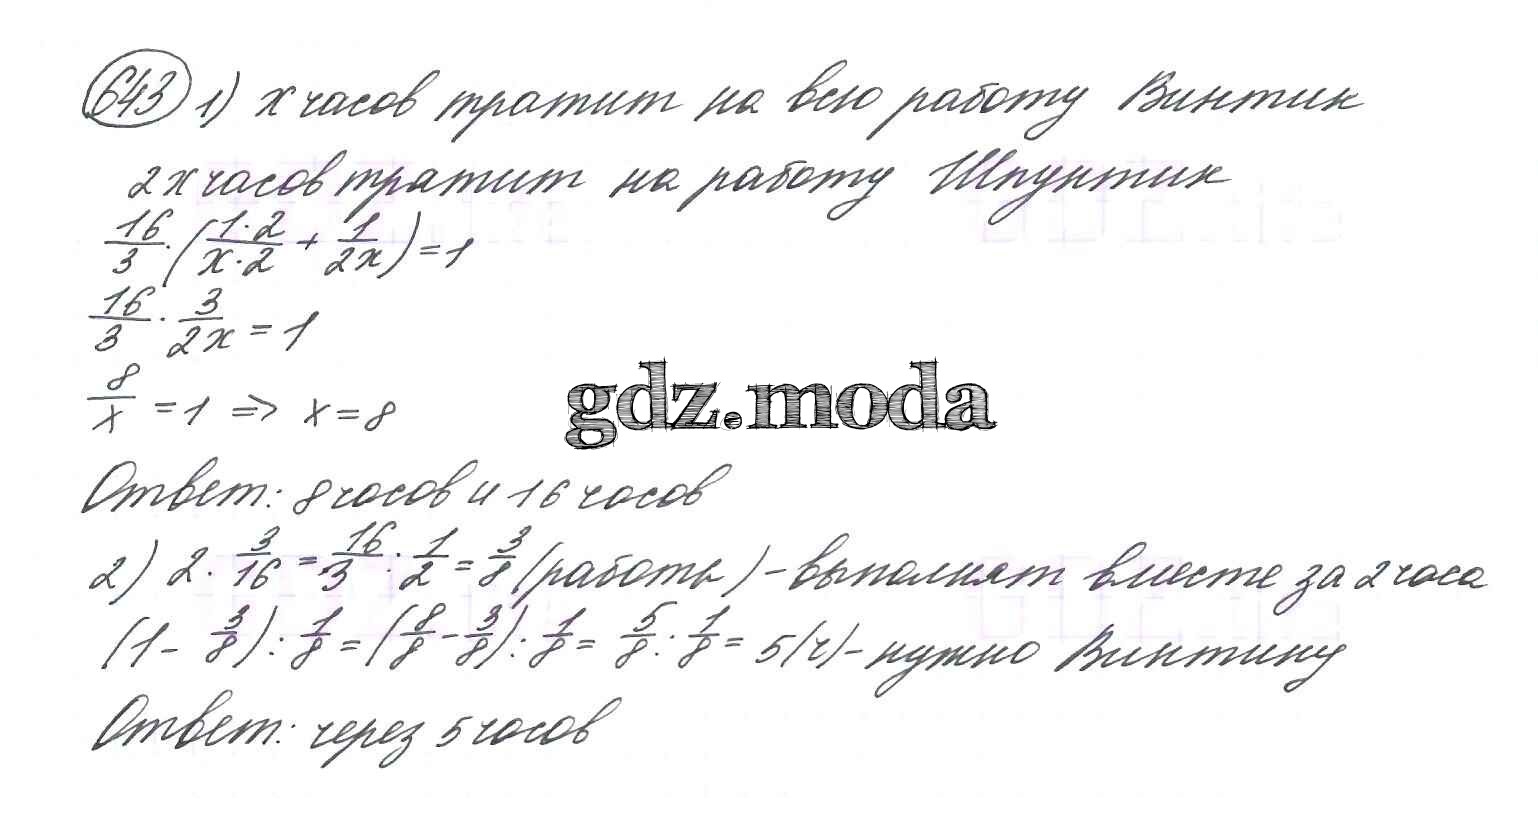 643 1) x часов тратит на всю работу Винтик
2x часов тратит на работу Шпунтик
16/3 · (1·2/x·2 + 1/2x) = 1
16/3 · 3/2x = 1
8/x = 1 => x = 8
gdz.moda
Ответ: 8 часов и 16 часов
2) 2 · 3/16 = 16/3 · 1/2 = 3/8 (работы) - выполнят вместе за 2 часа
(1 - 3/8) : 1/8 = (8/8 - 3/8) : 1/8 = 5/8 : 1/8 = 5 (ч) - нужно Винтину
Ответ: через 5 часов